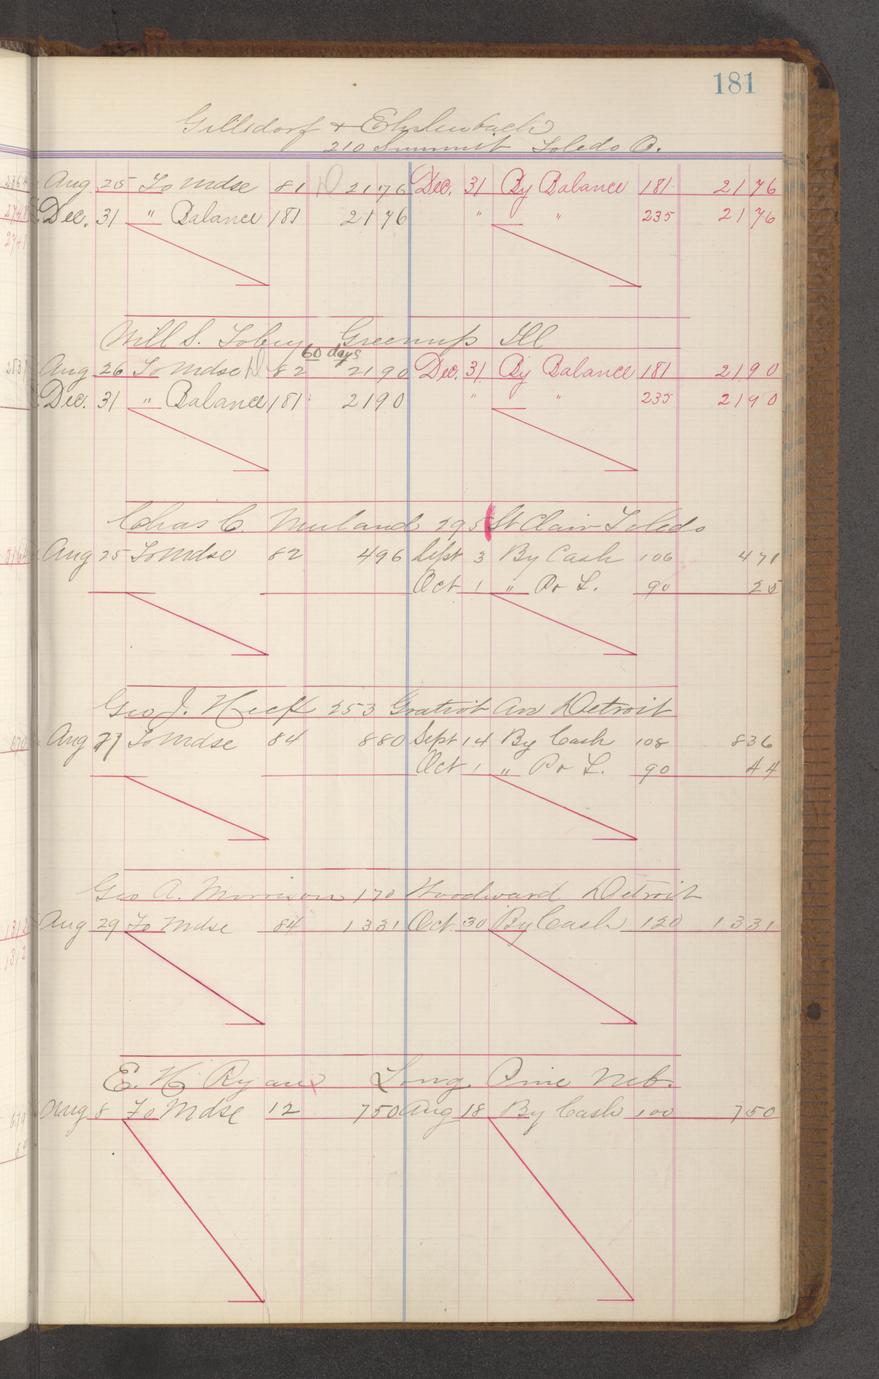 181
Gillsdorf &
210 Summit Toledo O.
Aug 25 To Mdse 81 2176 Dec. 31 By Balance 181 2176
Dec. 31 " Balance 181 2176 " " 235 2176
Will S. Tobey Greenup Ill
60 days
Aug 26 To Mdse 82 2190 Dec. 31 By Balance 181 2190
Dec. 31 " Balance 181 2190 " " 235 2190
Chas C. 295 St Clair Toledo
Aug 25 To Mdse 82 496 Sept 3 By Cash 106 471
Oct 1 " P & L. 90 25
Geo J. 253 Gratiot Av Detroit
Aug 27 To Mdse 84 880 Sept 14 By Cash 108 836
Oct 1 " P & L. 90 44
Geo A. Morrison 170 Woodward Detroit
Aug 29 To Mdse 84 1331 Oct 30 By Cash 120 1331
E. H. Ryan Long Pine Neb.
Aug 8 To Mdse 12 750 Aug 18 By Cash 100 750